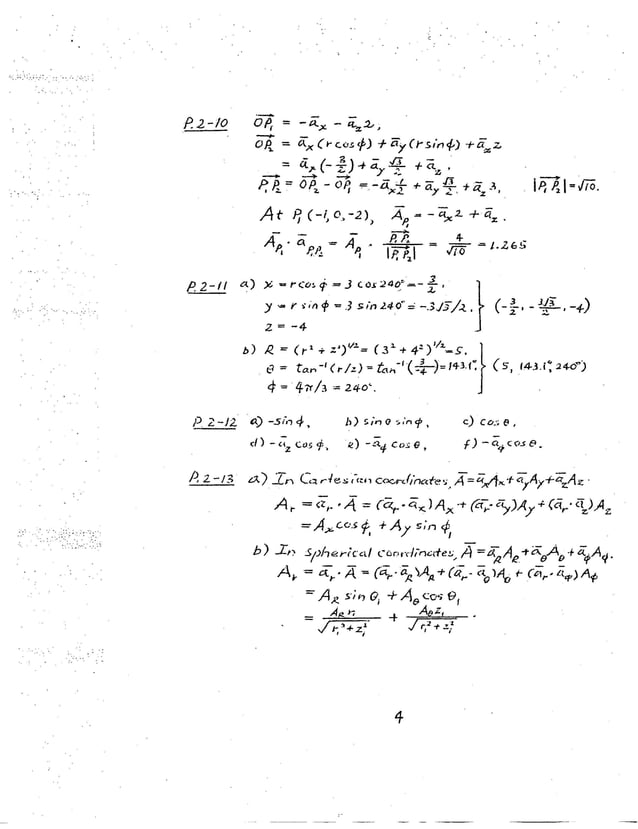 P.2-10 OP₁ = -āₓ - ā_z2,
OP₂ = āₓ(r cosφ) + ā_y(r sinφ) + ā_z z
= āₓ(-3/2) + ā_y √3/2 + ā_z.
P₁P₂ = OP₂ - OP₁ = -āₓ 1/2 + ā_y √3/2 + ā_z 3, |P₁P₂| = √10.
At P₁(-1, 0, -2), Ā_P₁ = -āₓ2 + ā_z.
Ā_P₁ · ā_P₁P₂ = Ā_P₁ · P₁P₂/|P₁P₂| = 4/√10 = 1.265
P.2-11 a) x = r cosφ = 3 cos 240° = -3/2,
y = r sinφ = 3 sin 240° = -3√3/2, } (-3/2, -3√3/2, -4)
z = -4
b) R = (r² + z²)^1/2 = (3² + 4²)^1/2 = 5,
θ = tan⁻¹(r/z) = tan⁻¹(3/-4) = 143.1°, } (5, 143.1°, 240°)
φ = 4π/3 = 240°.
P.2-12 a) -sinφ, b) sinθ sinφ, c) cosθ,
d) -ā_z cosφ, e) -ā_φ cosθ, f) -ā_φ cosθ.
P.2-13 a) In Cartesian coordinates, Ā = āₓAₓ + ā_yA_y + ā_zA_z.
A_r = ā_r · Ā = (ā_r · āₓ)Aₓ + (ā_r · ā_y)A_y + (ā_r · ā_z)A_z
= Aₓ cosφ₁ + A_y sinφ₁
b) In spherical coordinates, Ā = ā_R A_R + ā_θ A_θ + ā_φ A_φ.
A_r = ā_r · Ā = (ā_r · ā_R)A_R + (ā_r · ā_θ)A_θ + (ā_r · ā_φ)A_φ
= A_R sinθ₁ + A_θ cosθ₁
= A_R r₁/√r₁²+z₁² + A_θ z₁/√r₁²+z₁² .
4